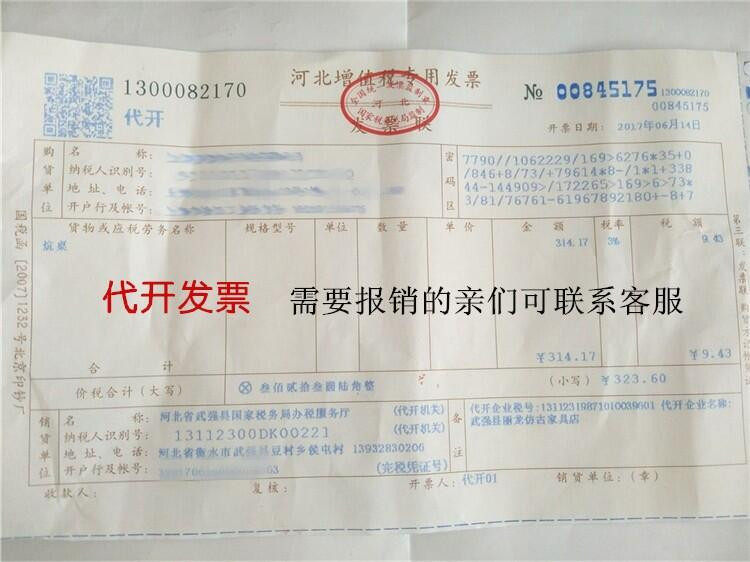 1300082170
代开
河北增值税专用发票
发票联
全国统一发票监制章
河北
国家税务局监制
№ 00845175
1300082170
00845175
开票日期: 2017年06月14日
购货单位
名称:
纳税人识别号:
地址、电话:
开户行及帐号:
密码区
7790//1062229/169>6276*35+0
/846+8/73/+79614*8-/1*1+338
44-144909>/172265>169>6>73*
3/81/76761-61967892180+-8+7
货物或应税劳务名称 规格型号 单位 数量 单价 金额 税率 税额
炕桌 314.17 3% 9.43
代开发票 需要报销的亲们可联系客服
合计 ¥314.17 ¥9.43
价税合计(大写) ⊗叁佰贰拾叁圆陆角整 (小写) ¥323.60
销货单位
名称: 河北省武强县国家税务局办税服务厅 (代开机关)
纳税人识别号: 13112300DK00221 (代开机关)
地址、电话: 河北省衡水市武强县豆村乡侯屯村 13932830206
开户行及帐号: (完税凭证号)
备注
代开企业税号:13112319871010039601 代开企业名称:
武强县丽龙仿古家具店
收款人: 复核: 开票人: 代开01 销货单位:(章)
国税函[2007]1232号北京印钞厂
第三联:发票联